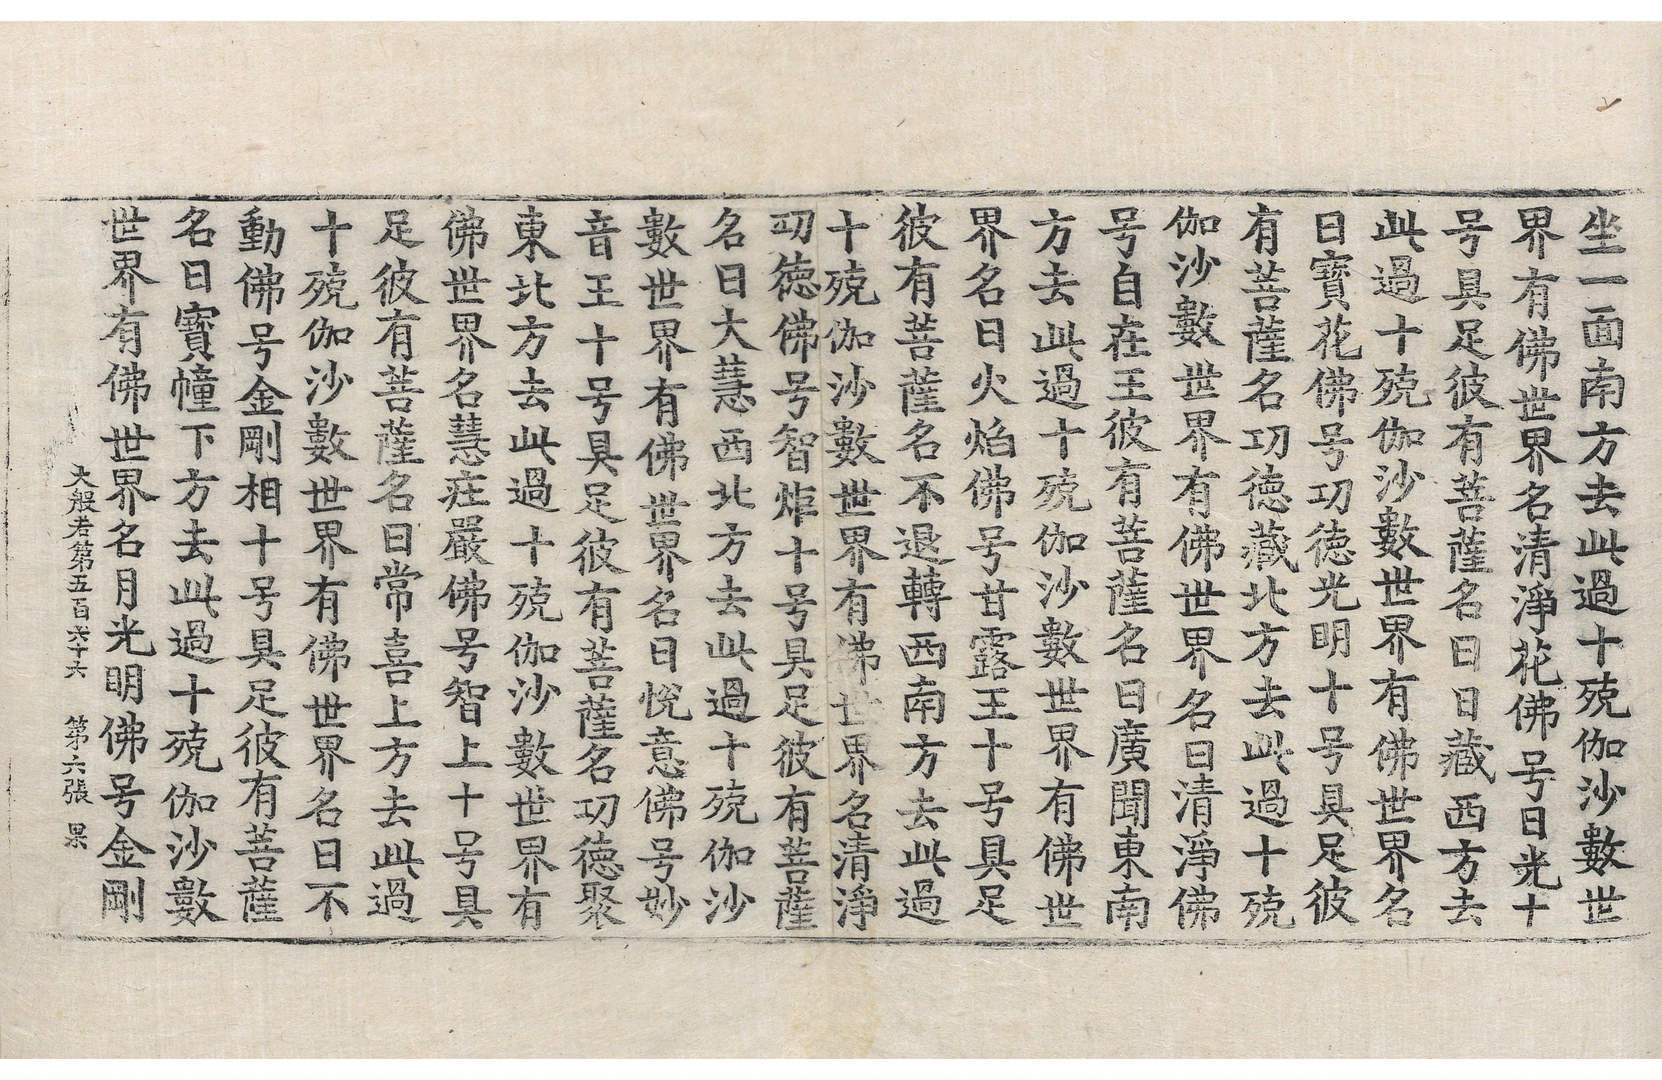 坐一面南方去此過十殑伽沙數世
界有佛世界名清淨花佛号日光十
号具足彼有菩薩名曰日藏西方去
此過十殑伽沙數世界有佛世界名
曰寶花佛号功徳光明十号具足彼
有菩薩名功徳藏北方去此過十殑
伽沙數世界有佛世界名曰清淨佛
号自在王彼有菩薩名曰廣聞東南
方去此過十殑伽沙數世界有佛世
界名曰火焰佛号甘露王十号具足
彼有菩薩名不退轉西南方去此過
十殑伽沙數世界有佛世界名清淨
功徳佛号智炬十号具足彼有菩薩
名曰大慧西北方去此過十殑伽沙
數世界有佛世界名曰悅意佛号妙
音王十号具足彼有菩薩名功徳聚
東北方去此過十殑伽沙數世界有
佛世界名慧莊嚴佛号智上十号具
足彼有菩薩名曰常喜上方去此過
十殑伽沙數世界有佛世界名曰不
動佛号金剛相十号具足彼有菩薩
名曰寶幢下方去此過十殑伽沙數
世界有佛世界名月光明佛号金剛
大般若第五百六十六 第六張 果